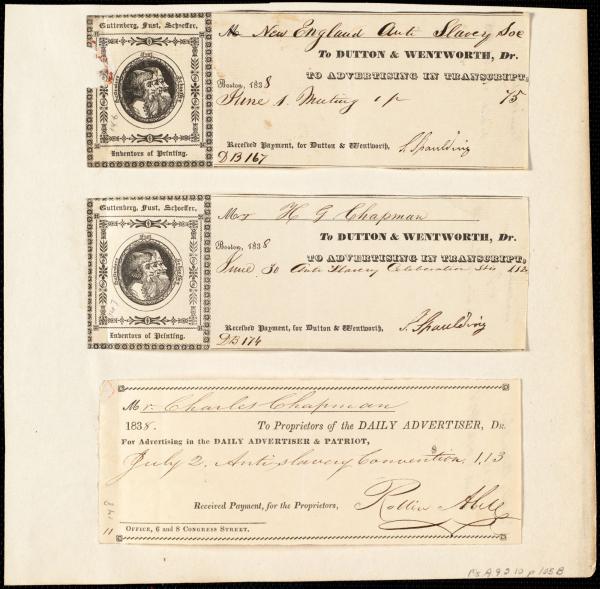 Guttenberg, Fust, Schoeffer,
Fust
Inventors of Printing.
Mr New England Anti Slavery Soc
To DUTTON & WENTWORTH, Dr.
TO ADVERTISING IN TRANSCRIPT,
Boston, 1838
June 1. Meeting 75
Received Payment, for Dutton & Wentworth,
S. Spaulding
DB 167
Guttenberg, Fust, Schoeffer,
Fust
Inventors of Printing.
Mr H G Chapman
To DUTTON & WENTWORTH, Dr.
Boston, 1838
TO ADVERTISING IN TRANSCRIPT,
June 30 Anti Slavery Celebration
Received Payment, for Dutton & Wentworth,
S. Spaulding
DB 174
Mr. Charles Chapman
1838. To Proprietors of the DAILY ADVERTISER, DR.
For Advertising in the DAILY ADVERTISER & PATRIOT,
July 2. Anti slavery Convention. $ 1,13
Received Payment, for the Proprietors,
Rollin Abell
OFFICE, 6 and 8 CONGRESS STREET.
Ms A.9.2.10 p 105B